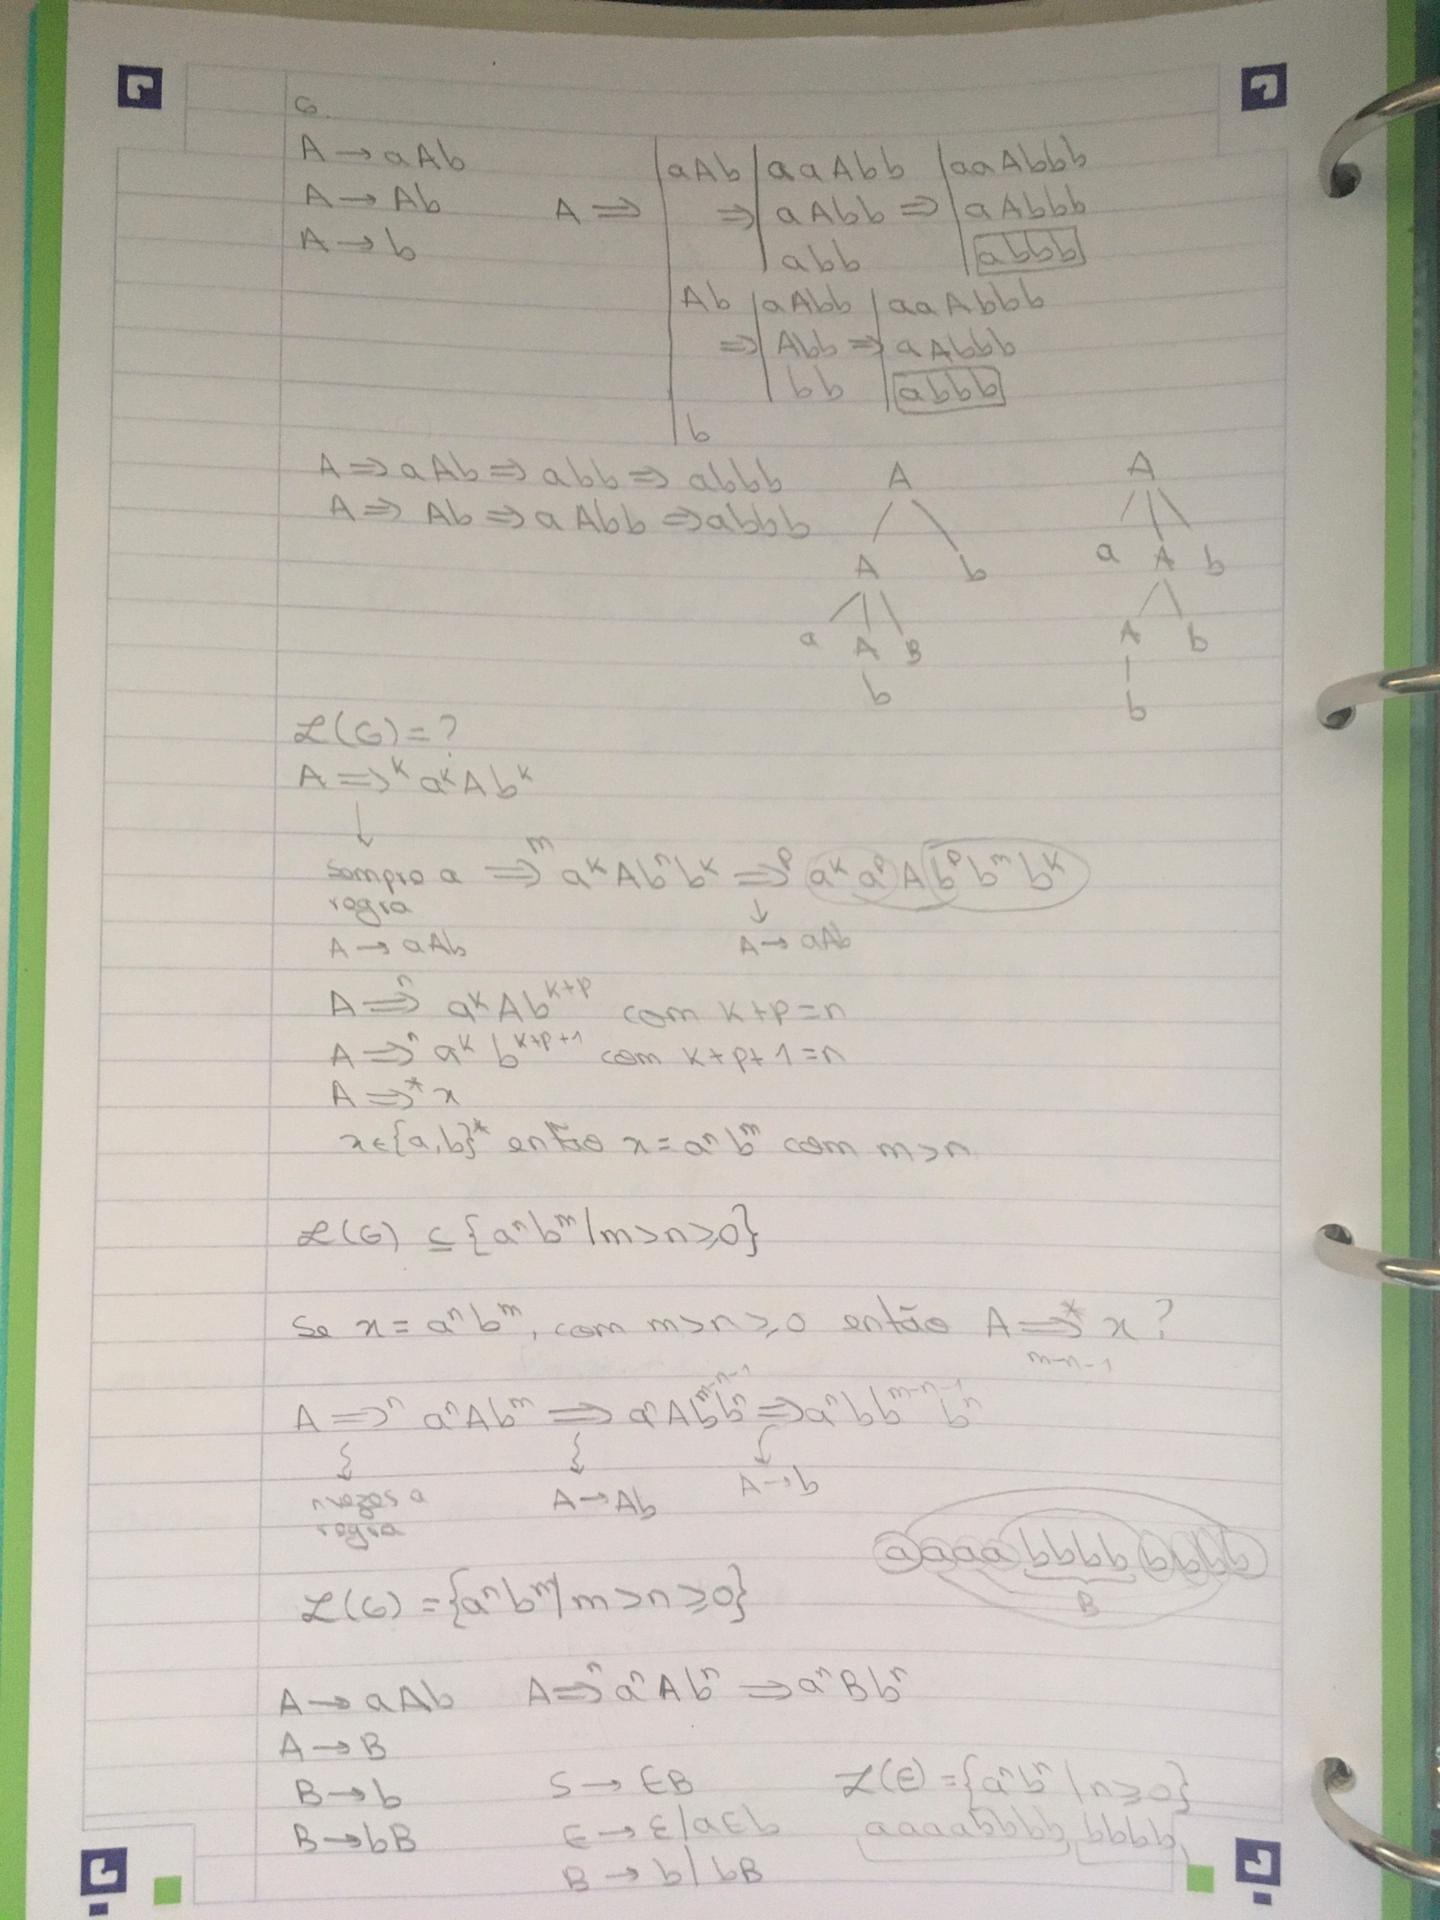 G
A → aAb
A → Ab
A → b
A ⇒ | aAb ⇒ | aaAbb ⇒ | aaAbbb
aAbb | aAbbb
abb | abbb
Ab ⇒ | aAbb ⇒ | aaAbbb
Abb | aAbbb
bb | abbb
b
A ⇒ aAb ⇒ abb ⇒ abbb
A ⇒ Ab ⇒ aAbb ⇒ abbb
A
A b
a A B
b
A
a A b
A b
b
L(G) = ?
A ⇒ᵏ aᵏAbᵏ
↓
sempre a ⇒ᵐ aᵏAbⁿbᵏ ⇒ᵖ aᵏaᵖAbᵖbᵐbᵏ
regra ↓
A → aAb A → aAb
A ⇒ⁿ aᵏAbᵏ⁺ᵖ com k+p=n
A ⇒ⁿ aᵏbᵏ⁺ᵖ⁺¹ com k+p+1=n
A ⇒* x
x∈{a,b}* então x = aⁿbᵐ com m>n
L(G) ⊆ {aⁿbᵐ | m>n≥0}
Se x = aⁿbᵐ, com m>n≥0 então A ⇒* x ?
m-n-1
A ⇒ⁿ aⁿAbᵐ ⇒ aⁿAbᵐ⁻ⁿ⁻¹bⁿ ⇒ aⁿbbᵐ⁻ⁿ⁻¹bⁿ
n vezes a A → Ab A → b
regra
aaaabbbbbbbb
B
L(G) = {aⁿbᵐ | m>n≥0}
A → aAb A ⇒ⁿ aⁿAbⁿ ⇒ aⁿBbⁿ
A → B
B → b S → EB L(E) = {aⁿbⁿ | n≥0}
B → bB E → ε|aEb aaaabbbb bbbb
B → b|bB